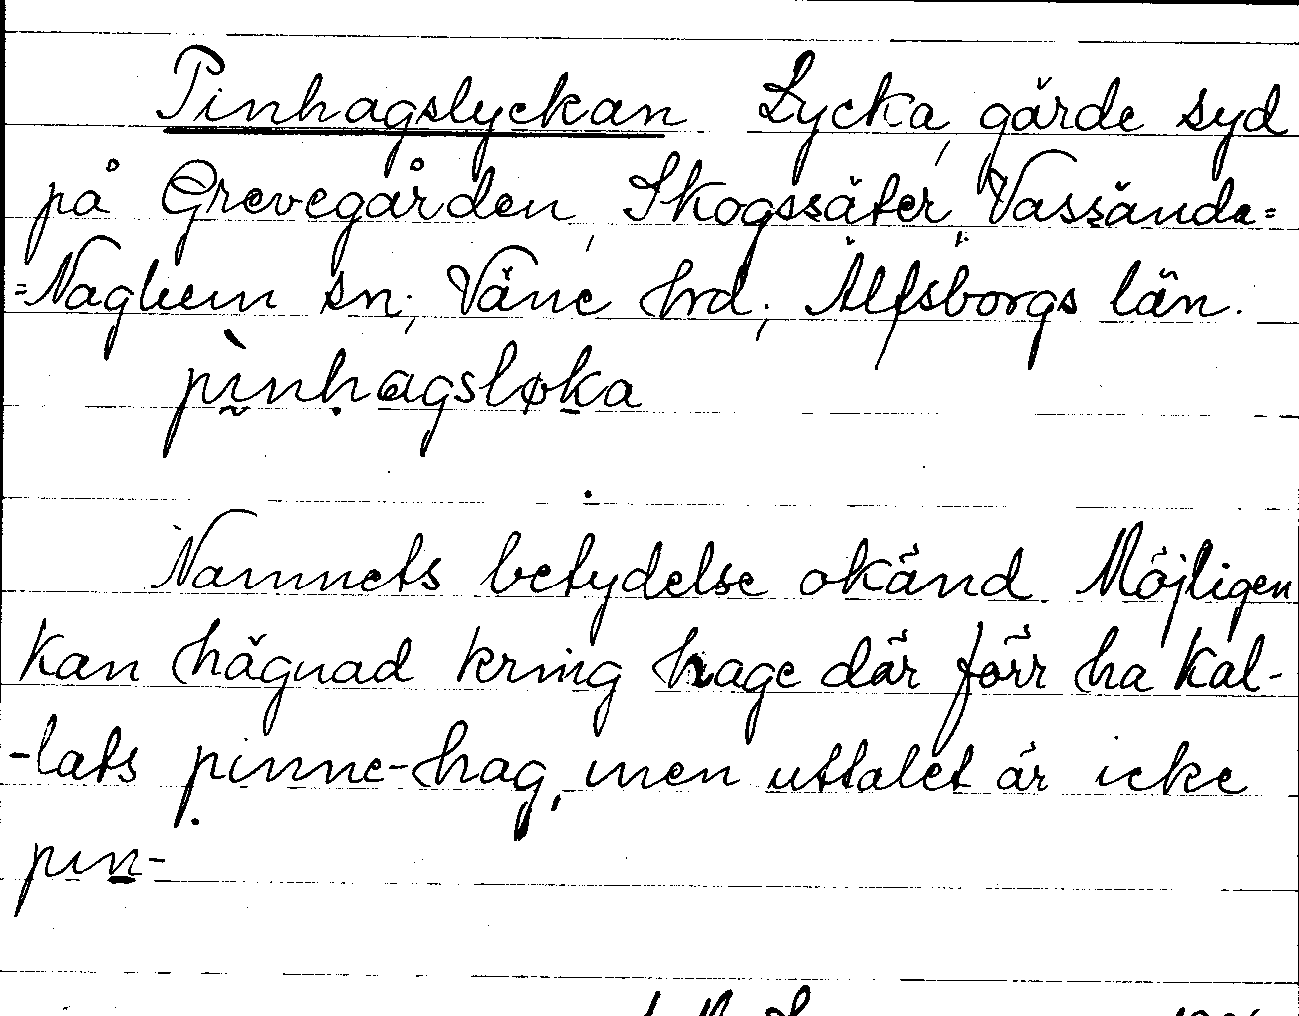 Pinhagslyckan Lycka, gärde syd
på Grevegården, Skogssäter, Vassända=
=Naglum sn; Väne hrd; Älfsborgs län.
pìnhagsløka
Namnets betydelse okänd. Möjligen
kan hägnad kring hage där förr ha kal-
-lats pinne-hag, men uttalet är icke
pin-